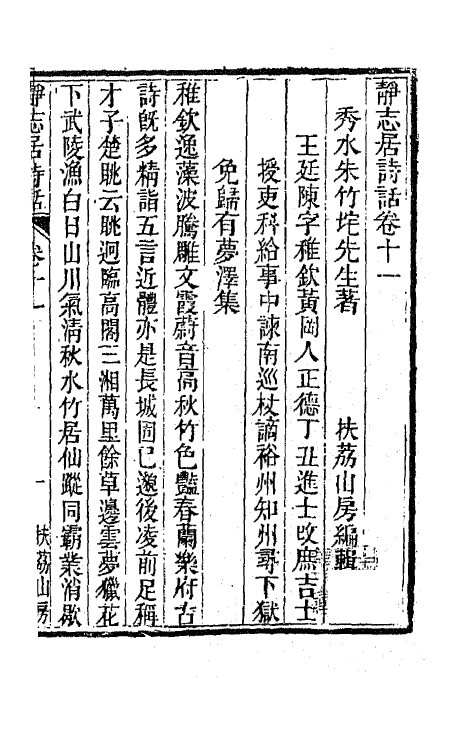 靜志居詩話卷十一
秀水朱竹垞先生著　扶荔山房編輯
王廷陳字稚欽黃岡人正德丁丑進士改庶吉士
授吏科給事中諫南巡杖謫裕州知州尋下獄
免歸有夢澤集
稚欽逸藻波騰雕文霞蔚音高秋竹色豔春蘭樂府古
詩旣多精詣五言近體亦是長城固已邈後凌前足稱
才子楚眺云眺迥臨高閣三湘萬里餘草邊雲夢獵花
下武陵漁白日山川氣淸秋水竹居仙蹤同霸業消歇
靜志居詩話　卷十一　一　扶荔山房